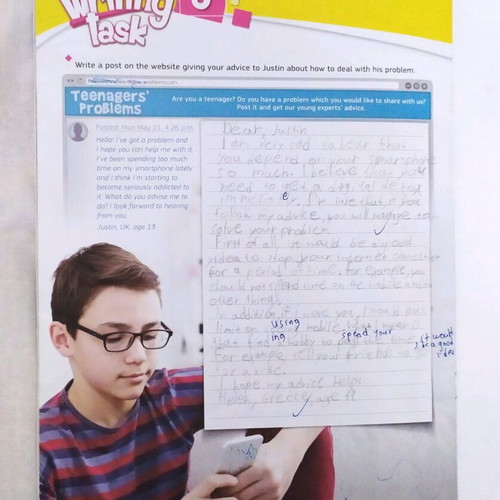 writing
task
Write a post on the website giving your advice to Justin about how to deal with his problem.
Teenagers'
Problems
Are you a teenager? Do you have a problem which you would like to share with us?
Post it and get our young experts' advice.
Posted: Mon May 21, 4.26 p.m.
Hello! I've got a problem and
I hope you can help me with it.
I've been spending too much
time on my smartphone lately
and I think I'm starting to
become seriously addicted to
it. What do you advise me to
do? I look forward to hearing
from you.
Justin, UK, age 13
Dear, Justin
I am very sad to hear that
you depend on your smartphone
so much. I believe that you
need to get a digital detox
I'm sure that if you
follow my advice, you will manage to
solve your problem
First of all, it would be a good
idea to stop your internet connection
for a period of time. For example, you
should not spend time on the mobile
other things.
In addition if I were you, I would put a
limit on using mobile
ing spend your , it would
be a good
idea
that find a hobby to
For example, tell your friends to go
for a
I hope my advice helps
Helen, Greece, age